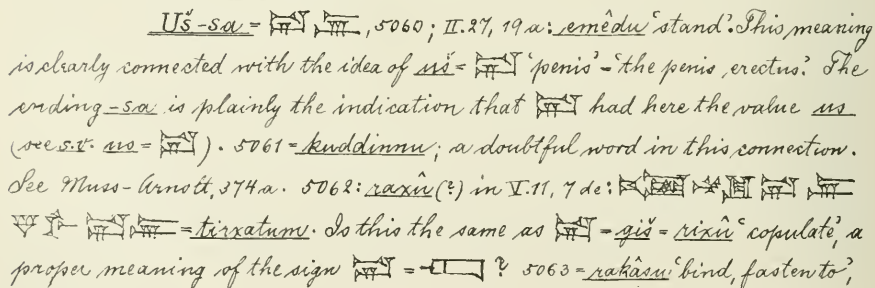 Uš-sa = 𒍑 𒊓, 5060; II. 27, 19 a: emêdu ‘stand’. This meaning
is clearly connected with the idea of uš = 𒍑 ‘penis’ - ‘the penis erectus’. The
ending -sa is plainly the indication that 𒍑 had here the value us
(see s.v. us = 𒍑). 5061 = kuddinnu; a doubtful word in this connection.
See Muss-Arnolt, 374 a. 5062: raxû (?) in V. 11, 7 de: 𒍑 𒊓
𒍑 𒊓 = tirxatum. Is this the same as 𒍑 = giš = rixû ‘copulate’, a
proper meaning of the sign 𒍑 = ? 5063 = rakâsu ‘bind, fasten to’,